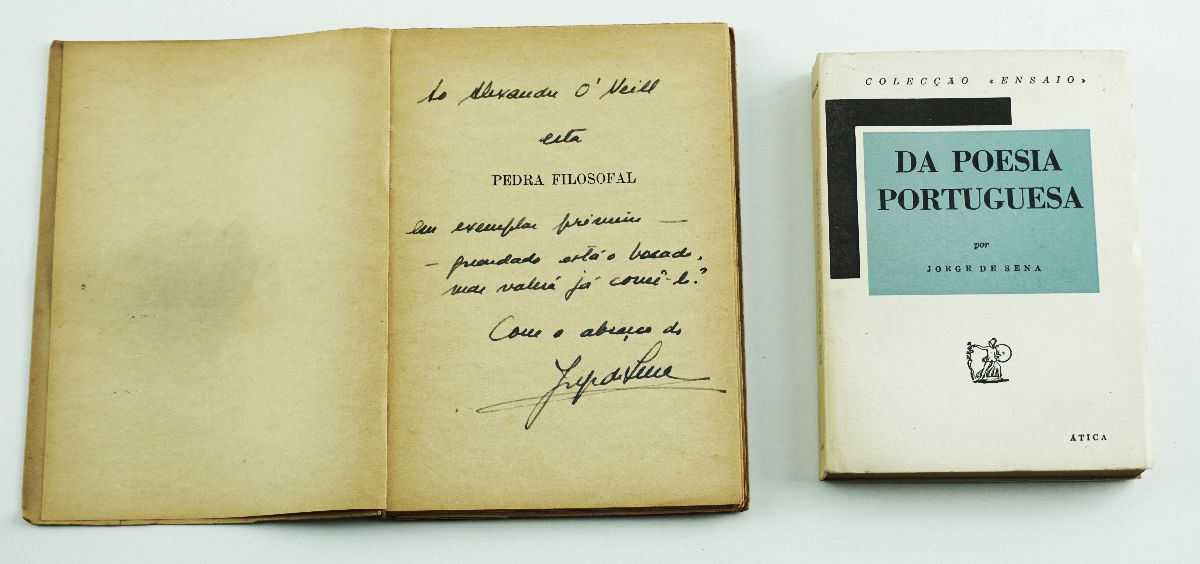 Ao Alexandre O'Neill
esta
PEDRA FILOSOFAL
em exemplar primeiro —
— guardado está o bocado,
mas valerá já comê-lo?
Com o abraço do
Jorge de Sena
COLECÇÃO «ENSAIO»
DA POESIA
PORTUGUESA
por
JORGE DE SENA
ÁTICA